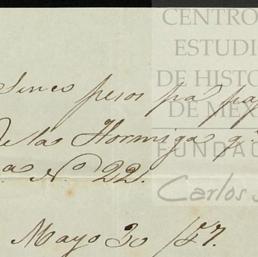 CENTRO
ESTUDI
DE HISTO
DE MÉX
FUNDAC
Carlos S
pesos pa. pa
de las Hormigas q.
a No 22.
Mayo 30 /57.